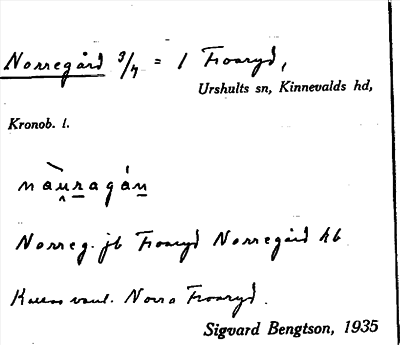 Norregård 3/4 = 1 Froaryd,
Urshults sn, Kinnevalds hd,
Kronob. l.
nàu̯ragán
Norreg. jb Froaryd Norregård kb
Kallas vanl. Norra Froaryd.
Sigvard Bengtson, 1935